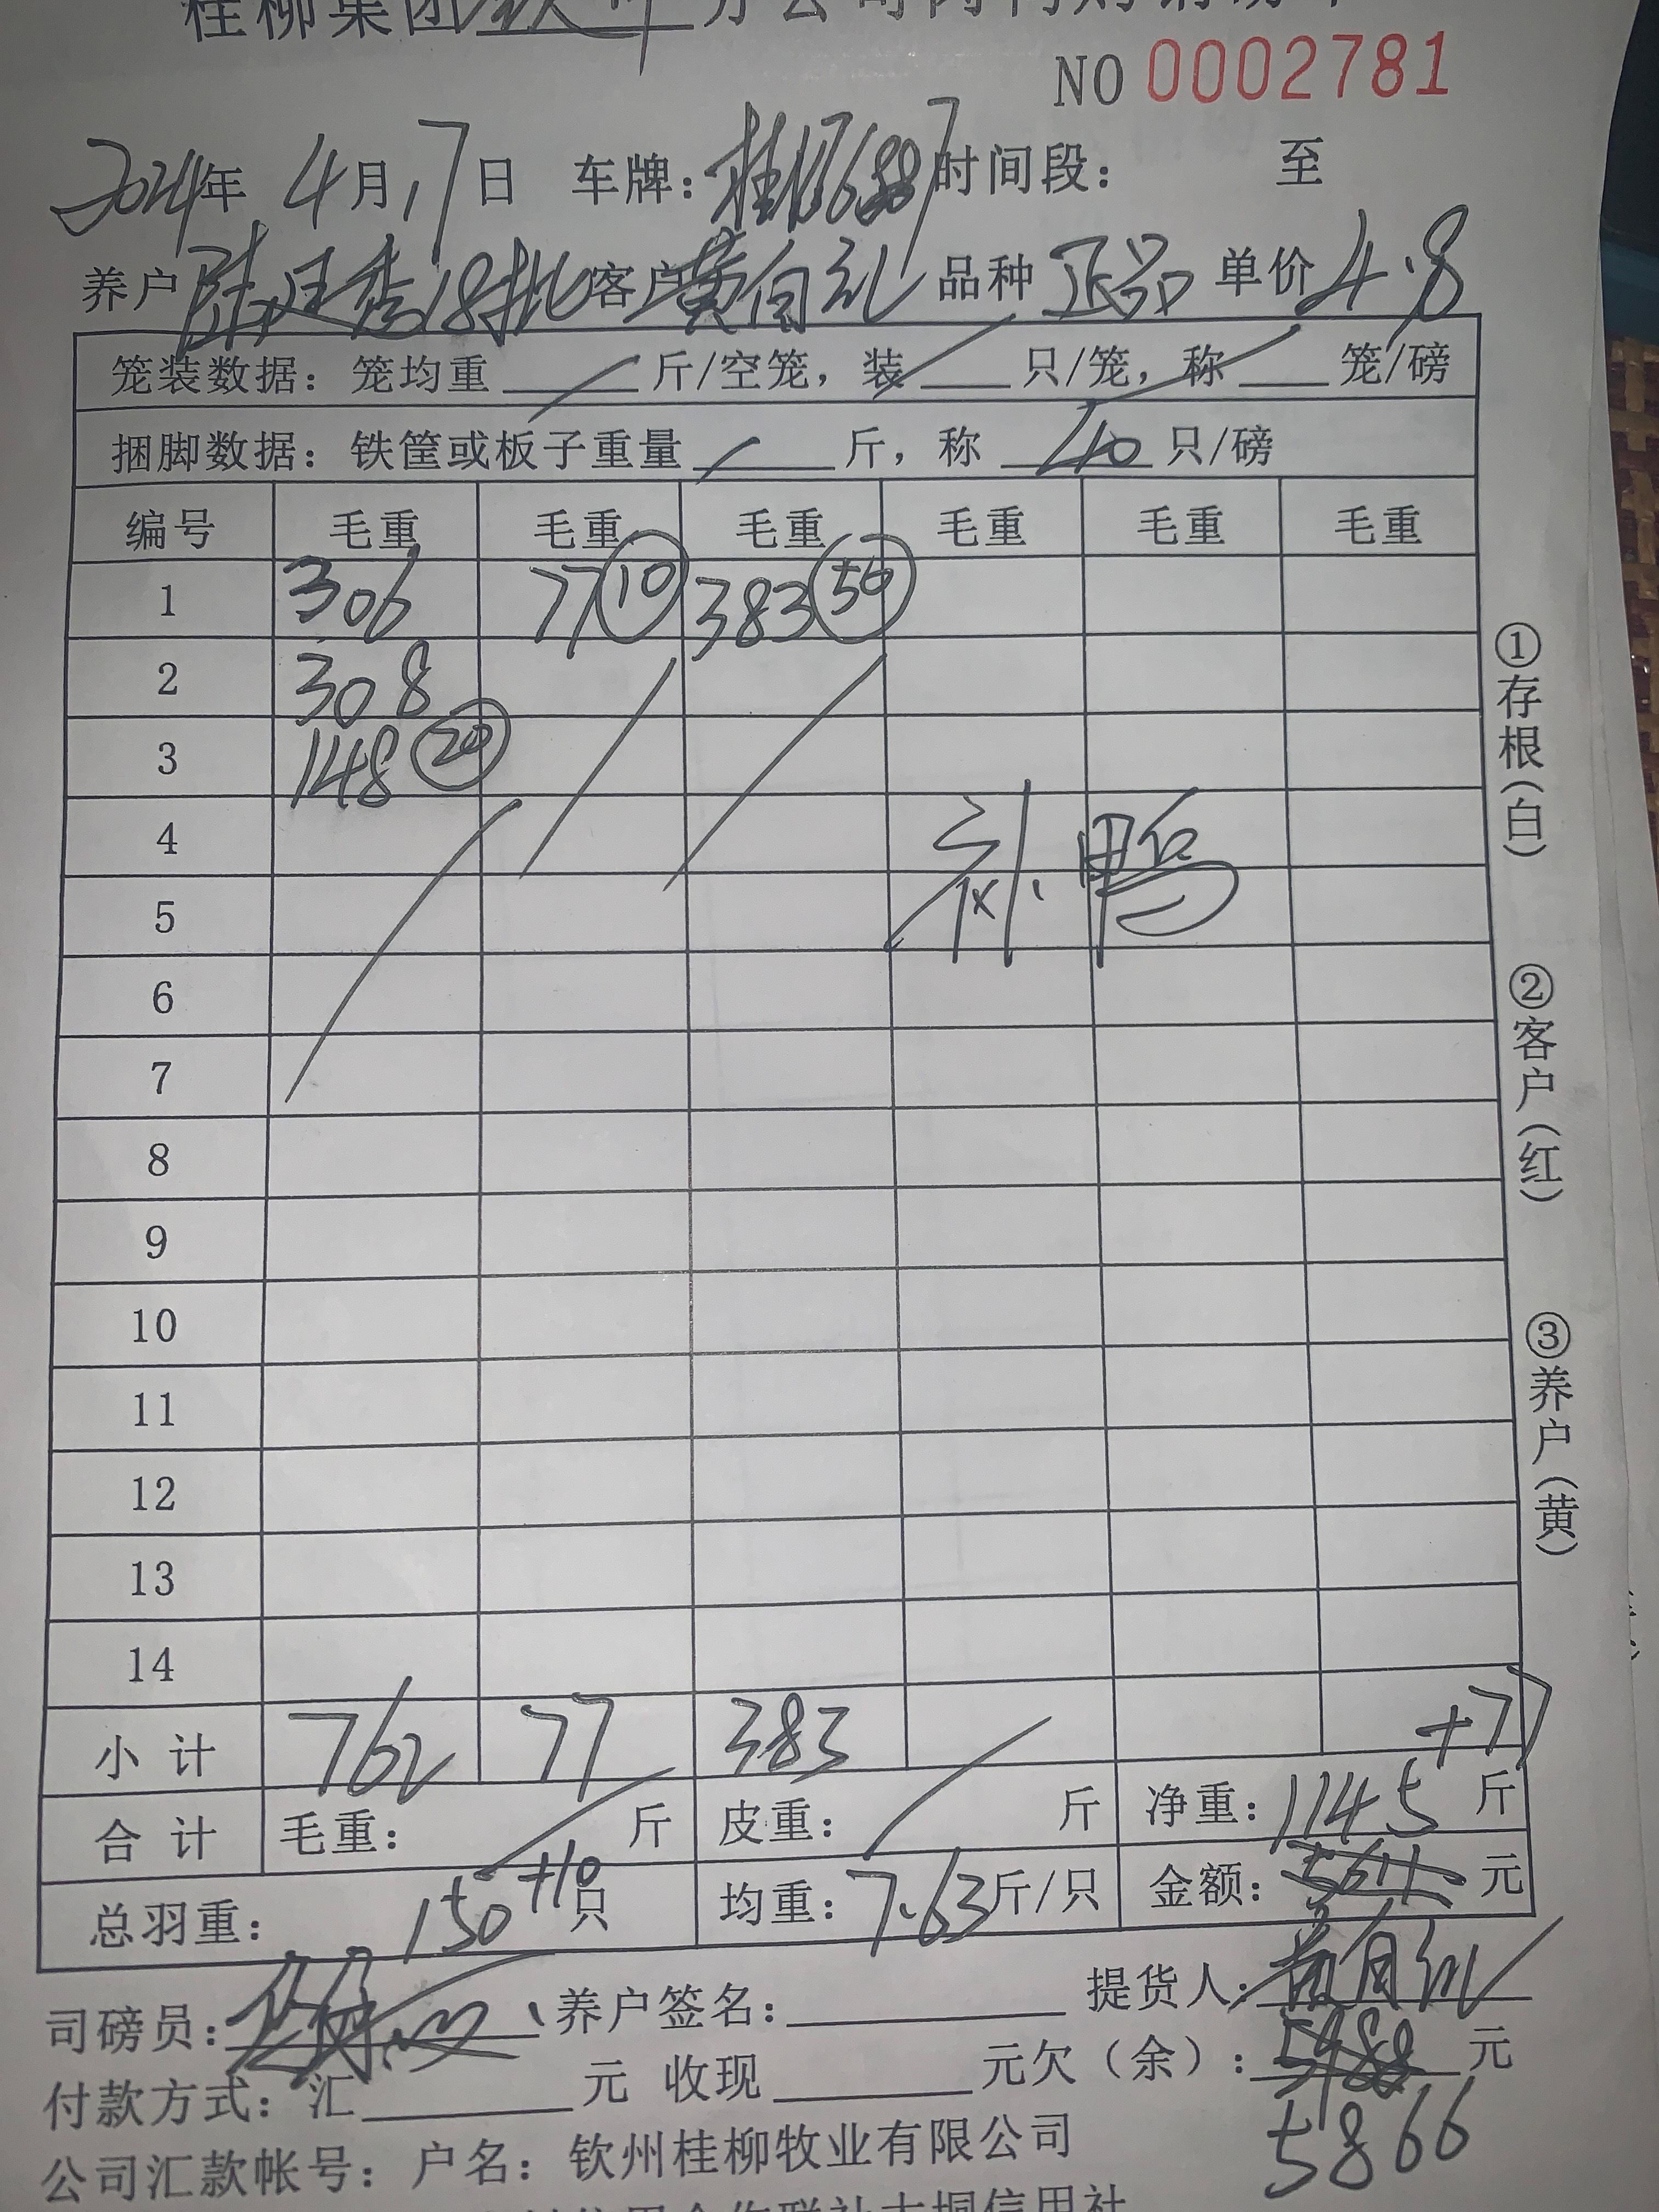 桂柳集团 分公司肉鸭购销磅单
NO 0002781
2024年 4月17日 车牌: 时间段: 至
养户 18批 客户 黄自礼 品种 正品 单价 4.8
笼装数据: 笼均重 斤/空笼, 装 只/笼, 称 笼/磅
捆脚数据: 铁筐或板子重量 斤, 称 40 只/磅
编号 毛重 毛重 毛重 毛重 毛重 毛重
1 306 77 10 383 50
2 308
3 148 20
4 补鸭
5
6
7
8
9
10
11
12
13
14
小计 762 77 383 +77
合计 毛重: 斤 皮重: 斤 净重: 1145 斤
总羽重: 150 +10 只 均重: 7.63 斤/只 金额: 元
司磅员: 养户签名: 提货人:
付款方式: 汇 元 收现 元欠(余): 元
5866
公司汇款帐号: 户名: 钦州桂柳牧业有限公司
①存根(白)
②客户(红)
③养户(黄)